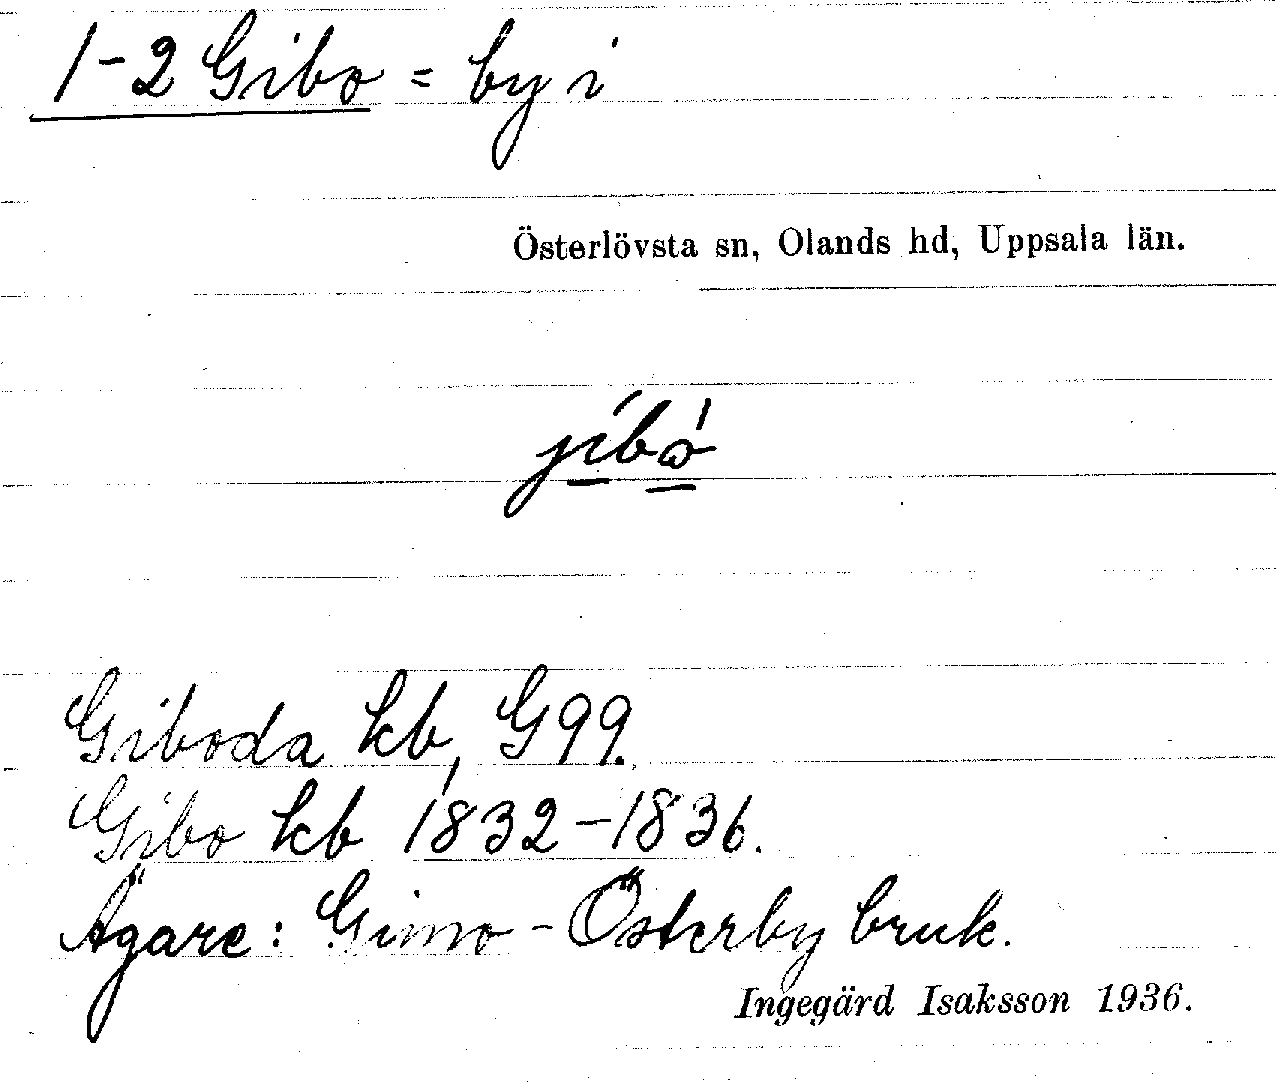 1-2 Gibo = by i
Österlövsta sn, Olands hd, Uppsala län.
jíbó̀
Giboda kb, G99.
Gibo kb 1832-1836.
Ägare: Gimo-Österby bruk.
Ingegärd Isaksson 1936.